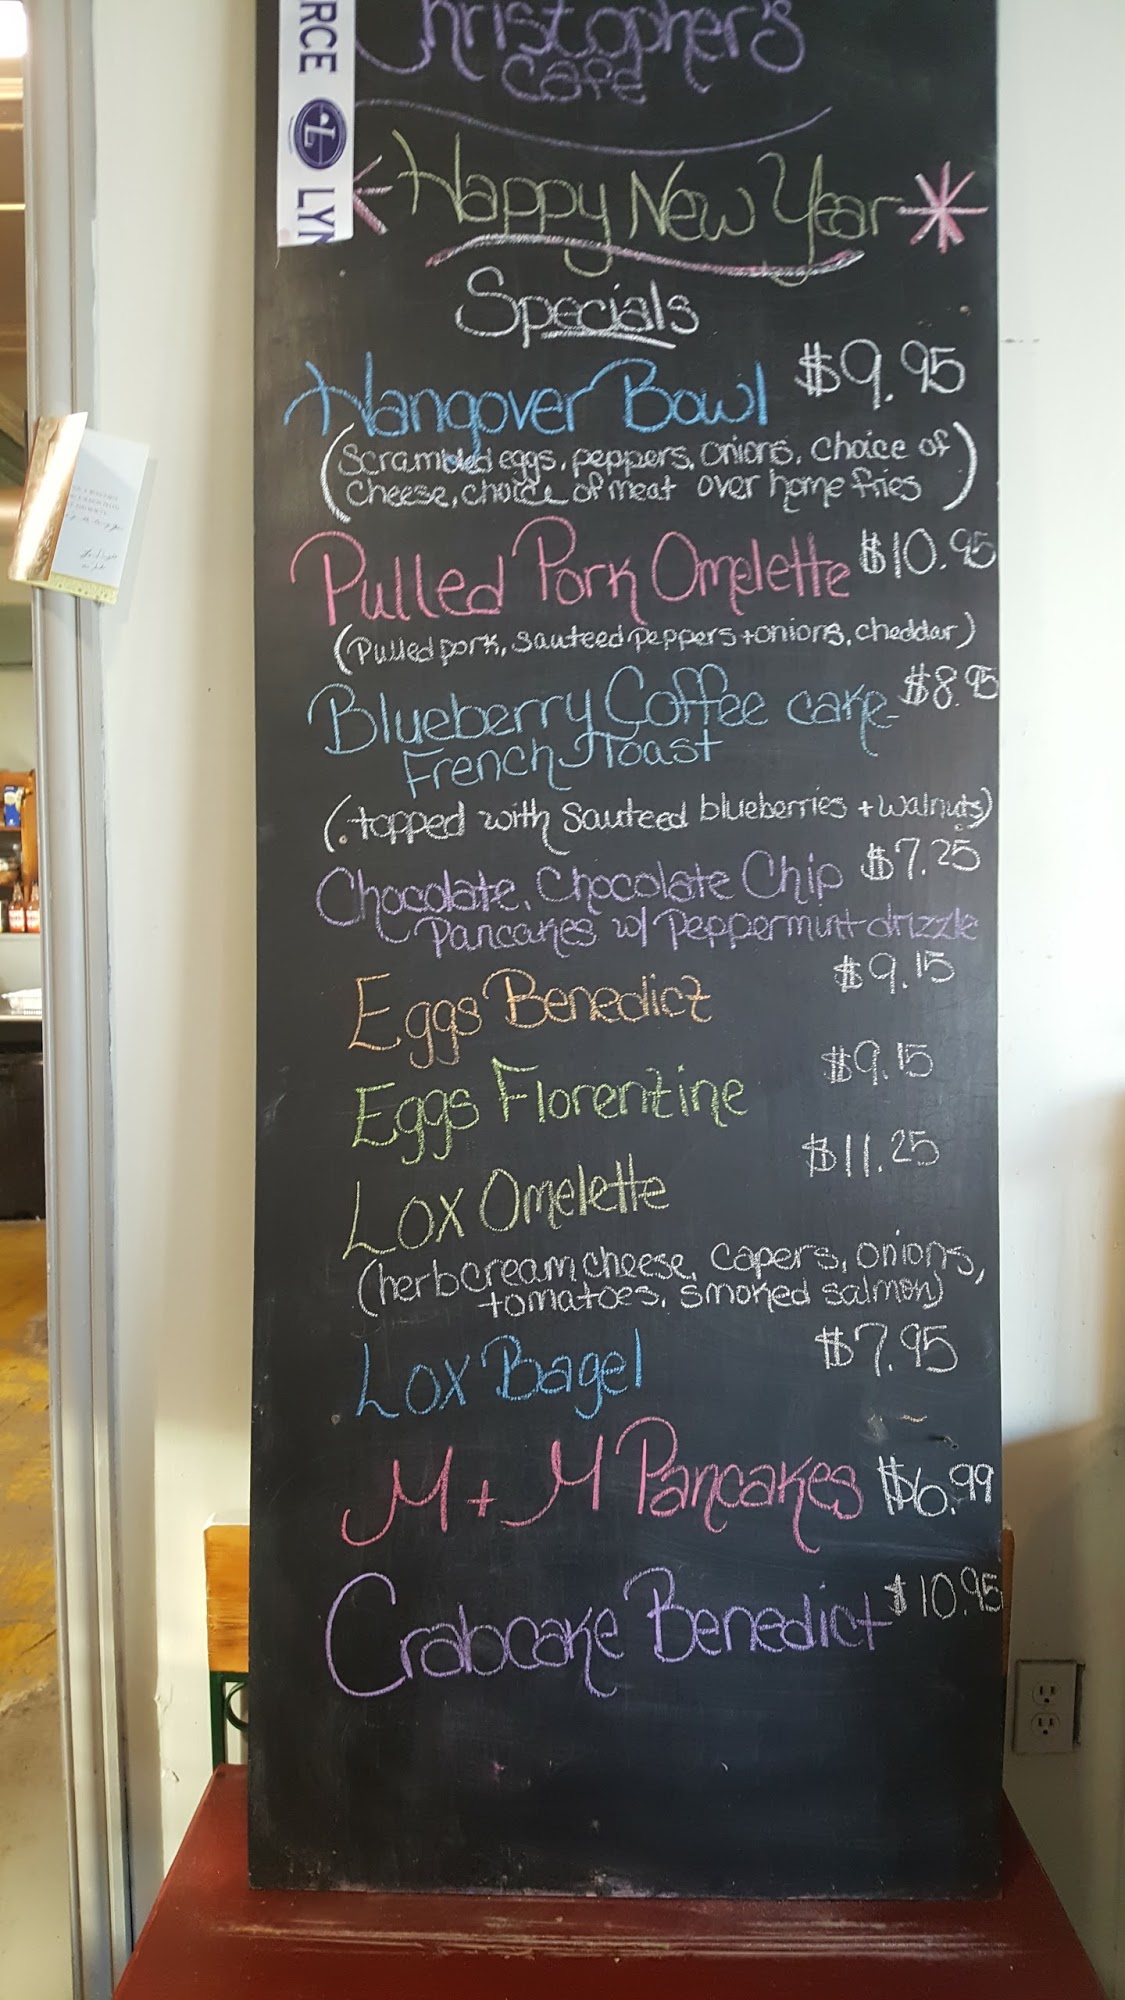 RCE L LYN
Christopher's
Café
Happy New Year
Specials
Hangover Bowl $9.95
(Scrambled eggs, peppers, onions, choice of
cheese, choice of meat over home fries)
Pulled Pork Omelette $10.95
(Pulled pork, sauteed peppers + onions, cheddar)
Blueberry Coffee cake $8.95
French Toast
(topped with sauteed blueberries + walnuts)
Chocolate, Chocolate Chip $7.25
Pancakes w/ Peppermint drizzle
Eggs Benedict $9.15
Eggs Florentine $9.15
Lox Omelette $11.25
(herb cream cheese, capers, onions,
tomatoes, smoked salmon)
Lox Bagel $7.95
M + M Pancakes $6.99
Crabcake Benedict $10.95